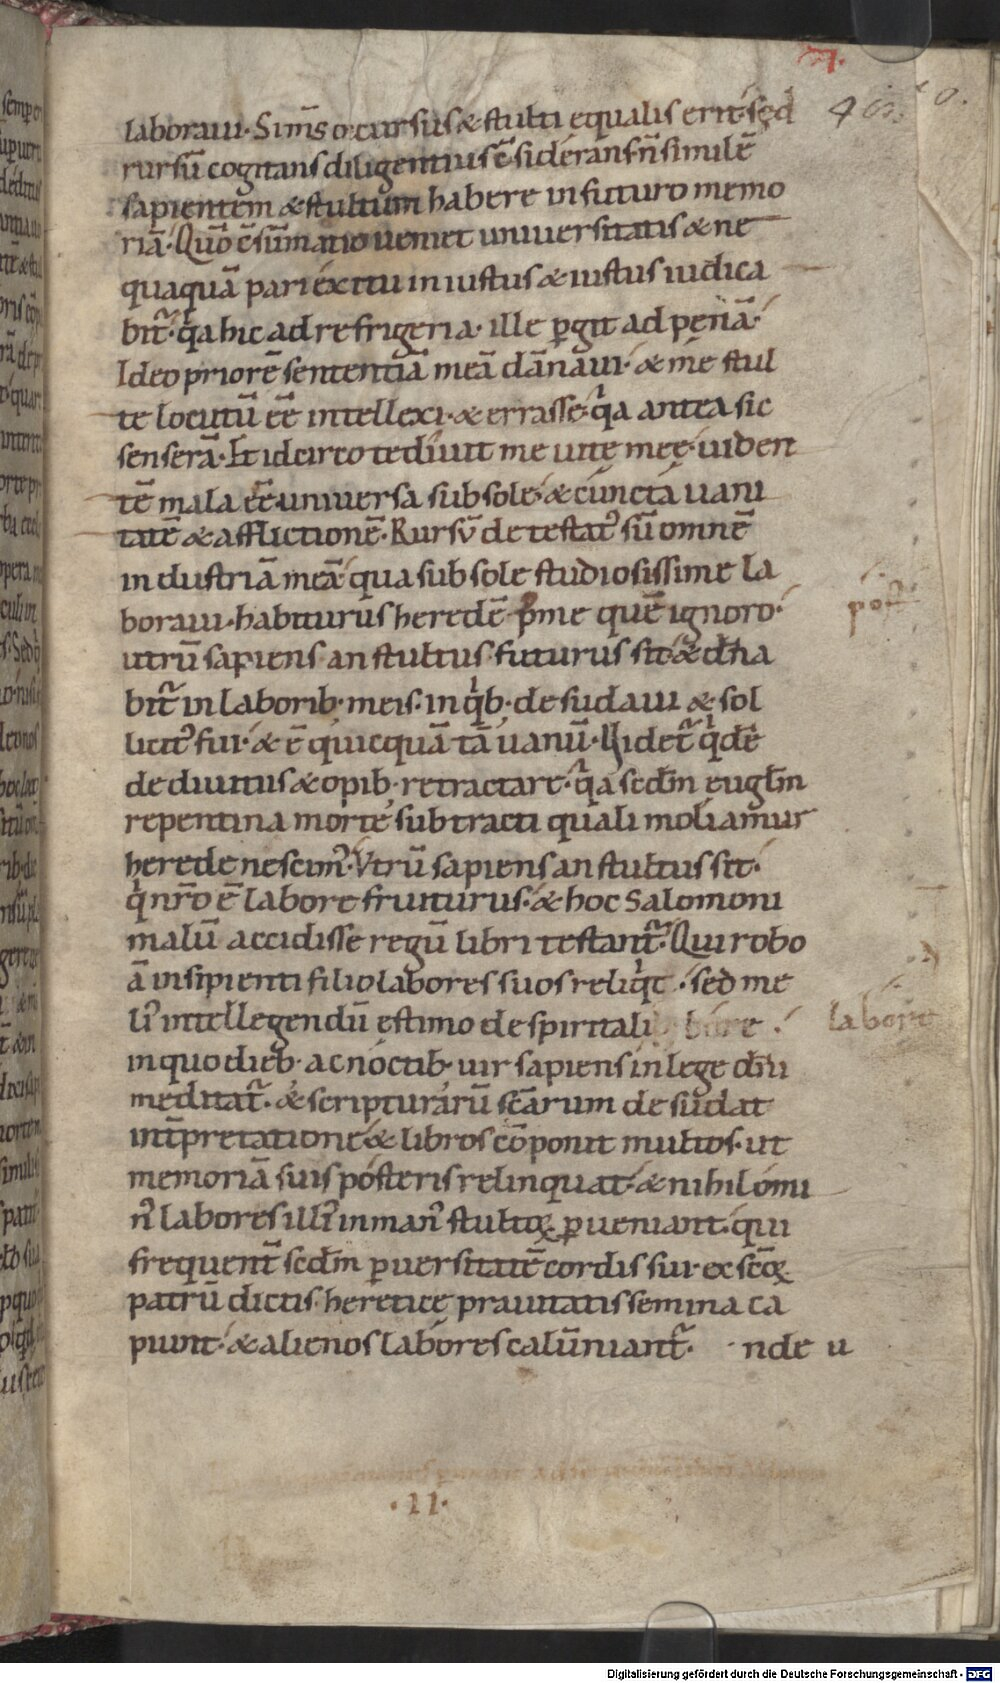 7.
40.
laboraui· Sim̅s occursus & stulti equalis erit· sed
rursū cogitans diligentius c̄siderans n̄ similē
sapientem & stultum habere in futuro memo
riā· Quo c̄sūmatio ueniet uniuersitatis & ne
quaquā pari exitu iniustus & iustus iudica
bit᷑· q̇a hic ad refrigeria· ille p̱git ad penā·
Ideo priorē sententiā meā dānaui· & me stul
te locutū ee̅ intellexi· & errasse· q̇a antea sic
senserā· Et idcirco tediuit me uitę meę· uiden
tē mala ee̅ uniuersa sub sole· & cuncta uani
tatē & afflictionē· Rursū detestat᷑ sū omnē
industriā meā qua sub sole studiosissime la
boraui· habiturus heredē p̱ me quē ignoro·
post
utrū sapiens an stultus futurus sit· & dn̅a
bit᷑ in laborib· meis· in q̇b· desudaui & sol
licit᷑ fui· & ē quicquā tā uanū· Videt᷑ q̇dē
de diuitiis & opib· retractare· q̇a secd̅m euglm̅
repentina morte subtracti quali moriamur
herede nescim᷑· Vtrū sapiens an stultus sit·
q̇ nr̅o ē labore fruiturus· & hoc Salomoni
malū accidisse regū libri testant᷑· Qui robo
ā insipienti filio labores suos reliq̇t· sed me
li᷑ intellegendū estimo de spiritali labore·
labore
in quo dieb· ac noctib· uir sapiens in lege dn̅i
meditat᷑· & scripturarū sc̅arum desudat
int̅pretatione & libros cōponit multos· ut
memoriā suis posteris relinquat· & nihilomi
n᷑ labores illi᷑ in man᷑ stultoꝝ p̱ueniant· qui
frequent̅ secd̅m p̱uersitatē cordis sui· ex sc̅oꝝ
patrū dictis· heretice prauitatis semina ca
piunt· & alienos labores calūniant᷑· nde u
·11·
Digitalisierung gefördert durch die Deutsche Forschungsgemeinschaft - DFG